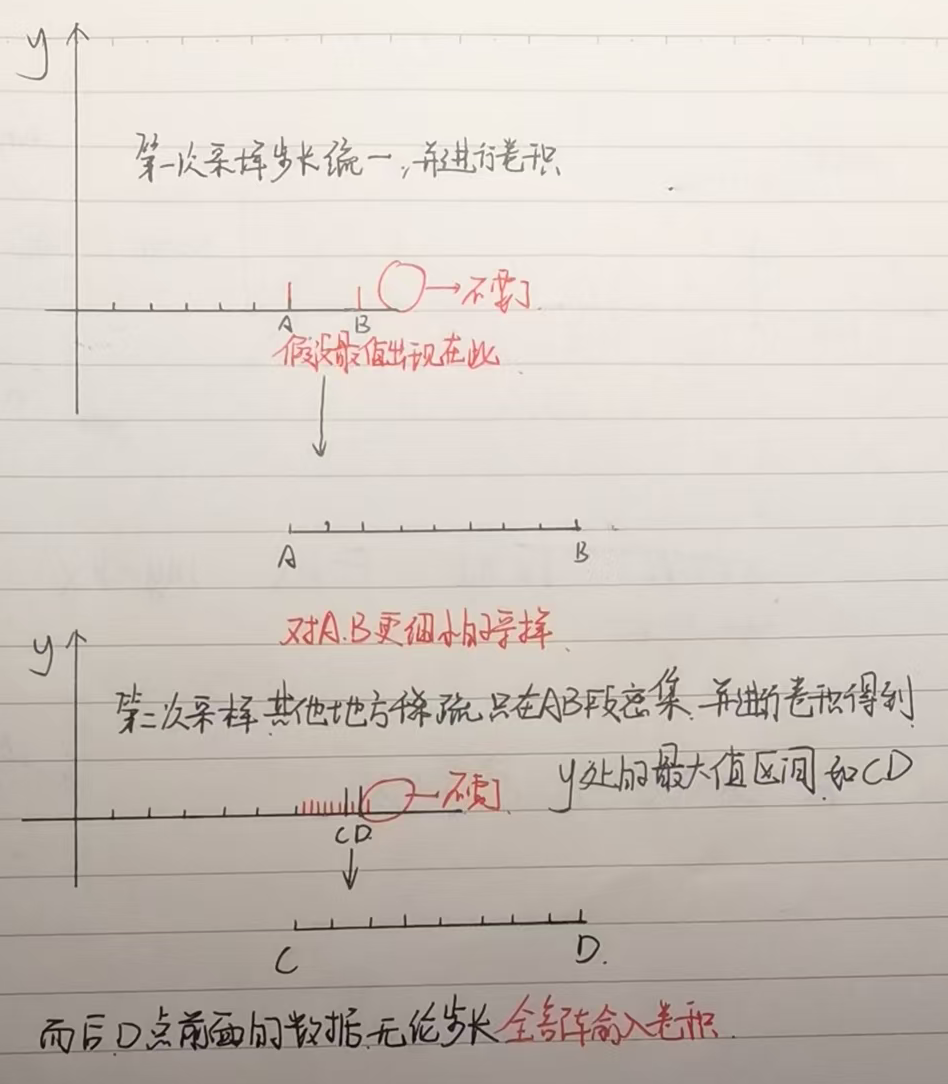 y
第一次采样步长统一,并进行卷积
→不要了
A B
假设最值出现在此
A B
对A.B更细小的采样
y
第二次采样.其他地方稀疏.只在AB段密集.并进行卷积得到
y处的最大值区间.如CD
不要了
C D.
C D.
而后.D点前面的数据.无论步长全部输入卷积.